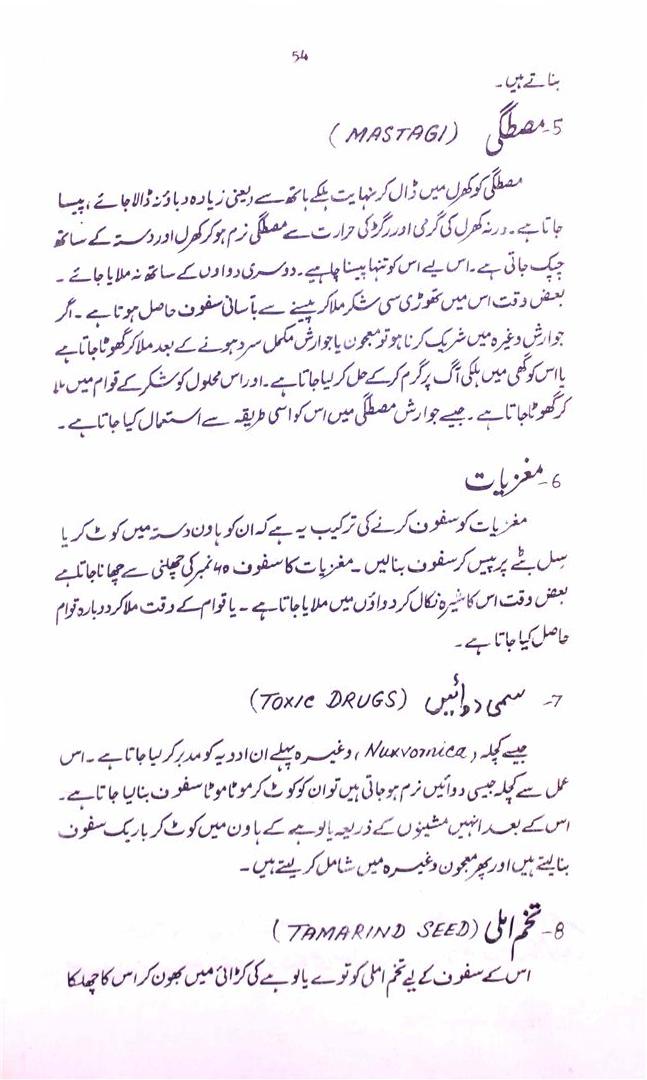 54
بناتے ہیں۔
5۔ مصطگی (MASTAGI)
مصطگی کو کھرل میں ڈال کر نہایت ہلکے ہاتھ سے (یعنی زیادہ دباؤ نہ ڈالا جائے) پیسا
جاتا ہے۔ ورنہ کھرل کی گرمی اور رگڑ کی حرارت سے مصطگی نرم ہوکر کھرل اور دستہ کے ساتھ
چپک جاتی ہے۔ اس لیے اس کو تنہا پیسنا چاہیے۔ دوسری دواوں کے ساتھ نہ ملایا جائے۔
بعض وقت اس میں تھوڑی سی شکر ملاکر پیسنے سے بآسانی سفوف حاصل ہوتا ہے۔ اگر
جوارش وغیرہ میں شریک کرنا ہو تو معجون یا جوارش مکمل سرد ہونے کے بعد ملاکر گھوٹا جاتا ہے
یا اس کو گھی میں ہلکی آگ پر گرم کرکے حل کرلیا جاتا ہے۔ اور اس محلول کو شکر کے قوام میں ملا
کر گھوٹا جاتا ہے۔ جیسے جوارش مصطگی میں اس کو اسی طریقہ سے استعمال کیا جاتا ہے۔
6۔ مغزیات
مغزیات کو سفوف کرنے کی ترکیب یہ ہے کہ ان کو ہاون دستہ میں کوٹ کر یا
سِل بٹے پر پیس کر سفوف بنالیں۔ مغزیات کا سفوف ۴۰ نمبر کی چھلنی سے چھانا جاتا ہے
بعض وقت اس کا شیرہ نکال کر دواؤں میں ملایا جاتا ہے۔ یا قوام کے وقت ملاکر دوبارہ قوام
حاصل کیا جاتا ہے۔
7۔ سمی دوائیں (TOXIC DRUGS)
جیسے کچلہ (Nuxvomica) وغیرہ پہلے ان ادویہ کو مدبر کرلیا جاتا ہے۔ اس
عمل سے کچلہ جیسی دوائیں نرم ہوجاتی ہیں تو ان کو کوٹ کر موٹا موٹا سفوف بنالیا جاتا ہے۔
اس کے بعد انہیں مشینوں کے ذریعہ یا لوہے کے ہاون میں کوٹ کر باریک سفوف
بنا لیتے ہیں اور پھر معجون وغیرہ میں شامل کر لیتے ہیں۔
8۔ تخم املی (TAMARIND SEED)
اس کے سفوف کے لیے تخم املی کو توے یا لوہے کی کڑائی میں بھون کر اس کا چھلکا